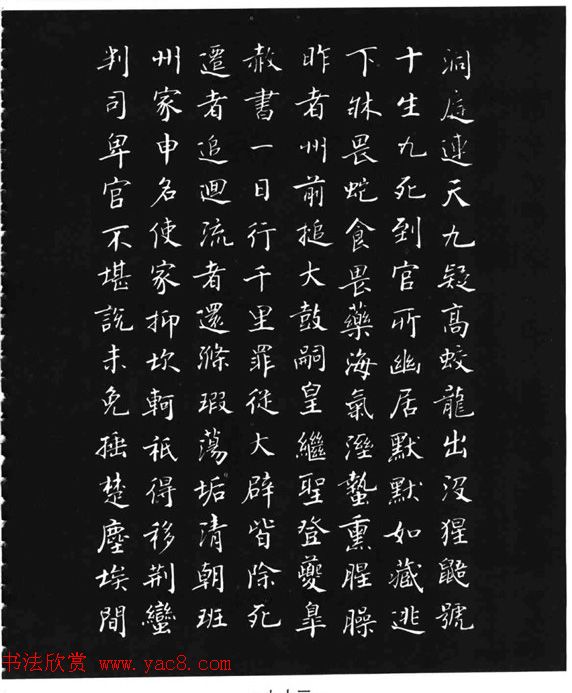 洞庭連天九疑高蛟龍出沒猩鼯號
十生九死到官所幽居默默如藏逃
下牀畏蛇食畏藥海氣溼蟄熏腥臊
昨者州前搥大鼓嗣皇繼聖登夔皐
赦書一日行千里罪從大辟皆除死
遷者追迴流者還滌瑕蕩垢清朝班
州家申名使家抑坎軻祇得移荊蠻
判司卑官不堪說未免捶楚塵埃間
书法欣赏 www.yac8.com